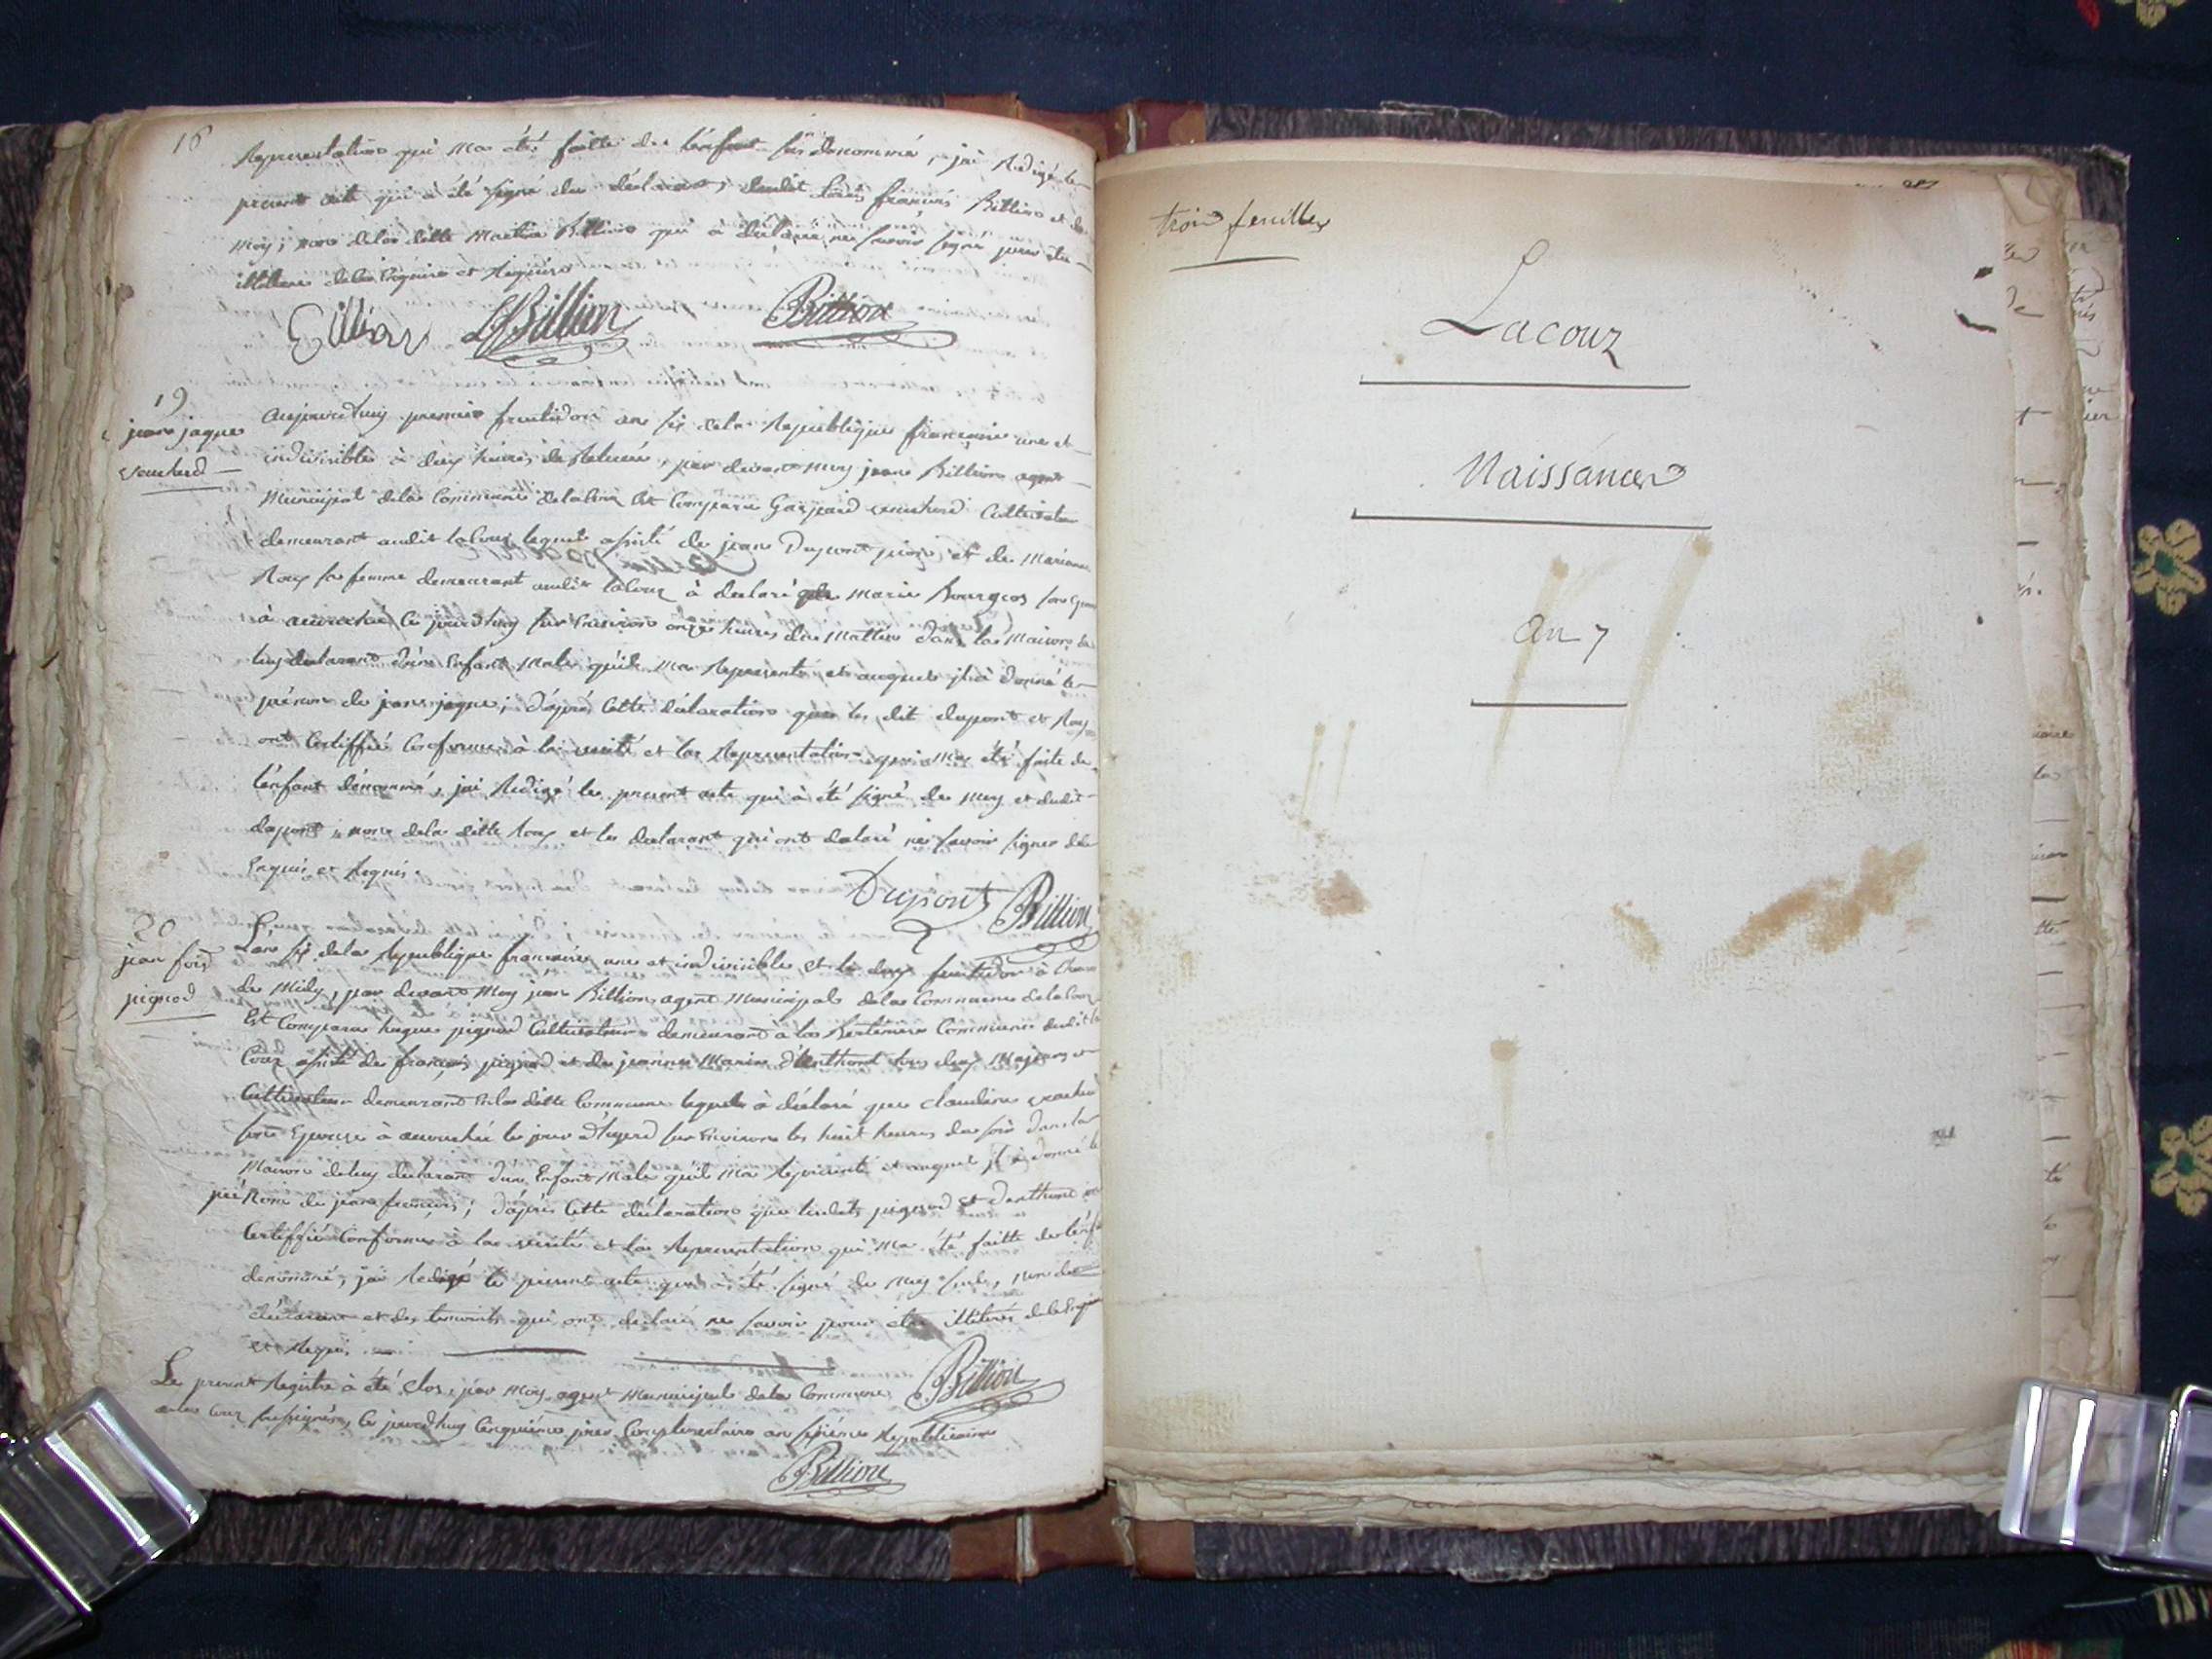 16
Representation qui ma été faitte de lenfant sus denommé, jai Redigé le
present acte qui à été signé du déclarant, dudit Louis françois Billion et de
moy, non de la ditte Martine Billion qui à déclaré ne savoir signer pour etre
illitérée de ce Enquise et Requise
Billion LfBillion Billion
19
jean jaque
vouherd
Aujourdhuy premier fructidor an six de la Republique françoise une et
indivisible à dix heures de relevée, par devant moy jean Billion agent
Municipal de la Commune de lacour Est Comparu Gaspard Cultivateur
demeurant audit lacour lequel assisté de jean Dupont et de Marianne
Roux sa femme demeurant audit lacour à declaré que Marie Bourgeos son
à accouchée ce jourdhuy sur Environ onze heures du Mattin dans la Maison de
luy declarant d'un Enfant Male quil ma Representé et auquel jl à donné le
prénom de jean jaque; d'après Cette déclaration que les dit dupont et Roux
ont Certiffié Conforme à la verité et la Representation qui ma été faite de
lénfant dénommé, jai Redigé le present acte qui à été signé de moy et dudit
dupont, non de la ditte Roux et le declarant qui ont declaré ne savoir signer de ce
Enquis et Requis.
Dupont Billion
20
jean fois
pignod
Lan six de la Republique françoise une et indivisible et le deux fructidor à
de Midy, par devant Moy jean Billion agent Municipal de la Commune de lacour
Est Comparu hugue pignod Cultivateur demeurant a la Commune dudit la
Cour assisté de françois pignod et de jeanne Marie d'anthond tous deux Majeurs et
Cultivateur demeurant En la ditte Commune lequel à déclaré que claudine
son Epouse à accouchée le jour d'hyerd sur Environ les huit heures du soir dans la
Maison de luy declarant d'un Enfant Male quil Ma Representé et auquel jl à donné le
préNom de jean francois; d'après Cette déclaration que lesdits pignod et danthond ont
Certiffié Conforme à la verité et la Representation qui Ma été faitte de lenfant
denommé, jai Redigé le present acte qui à été signé de moy seul, non du
déclarant et des temoints qui ont declaré ne savoir pour etre illitérés de ce Enquis
et Requis
Billion
Le present Registre à été clos par moy agent Municipal de la Commune
de la Cour soussigné, Ce jourdhuy Cinquième jour Complementaire an sixième Republicaine
Billion
trois feuilles
Lacour
Naissances
an 7